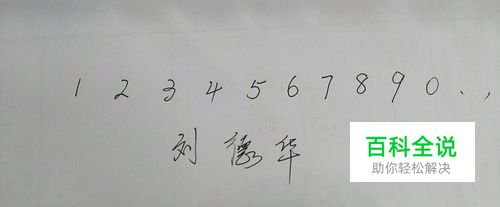 1 2 3 4 5 6 7 8 9 0 . ,
刘德华
百科全说
助你轻松解决